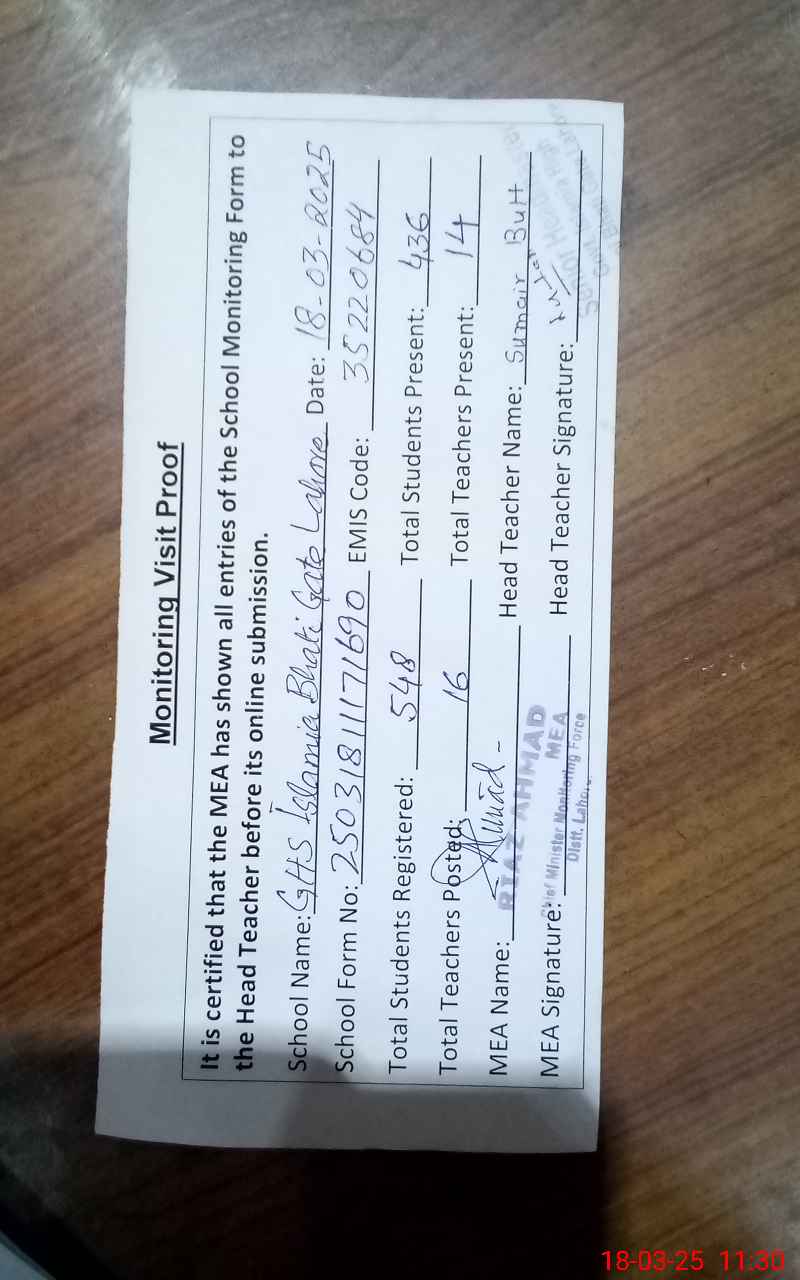 Monitoring Visit Proof
It is certified that the MEA has shown all entries of the School Monitoring Form to
the Head Teacher before its online submission.
School Name: GHS Islamia Bhati Gate Lahore Date: 18-03-2025
School Form No: 25031811171690 EMIS Code: 35220684
Total Students Registered: 548 Total Students Present: 436
Total Teachers Posted: 16 Total Teachers Present: 14
MEA Name: Head Teacher Name: Sumair Butt
RIAZ AHMAD
MEA
MEA Signature: Head Teacher Signature:
Chief Minister Monitoring Force
Distt. Lahore
18-03-25 11:30